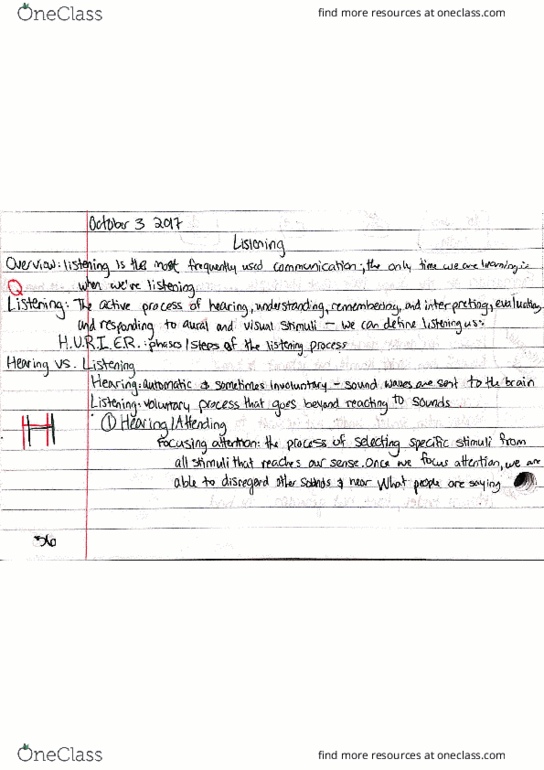 OneClass
find more resources at oneclass.com
October 3 2017
Listening
Overview: listening is the most frequently used communication; the only time we are learning is
Q when we're listening
Listening: The active process of hearing, understanding, remembering, and interpreting, evaluating,
and responding to aural and visual stimuli — we can define listening us:
H.U.R.I.E.R.: phases/steps of the listening process
Hearing vs. Listening
Hearing: automatic & sometimes involuntary - sound waves are sent to the brain
Listening: voluntary process that goes beyond reacting to sounds
① Hearing/Attending
H Focusing attention: the process of selecting specific stimuli from
all stimuli that reaches our sense. Once we focus attention, we are
able to disregard other sounds & hear what people are saying
36
OneClass
find more resources at oneclass.com